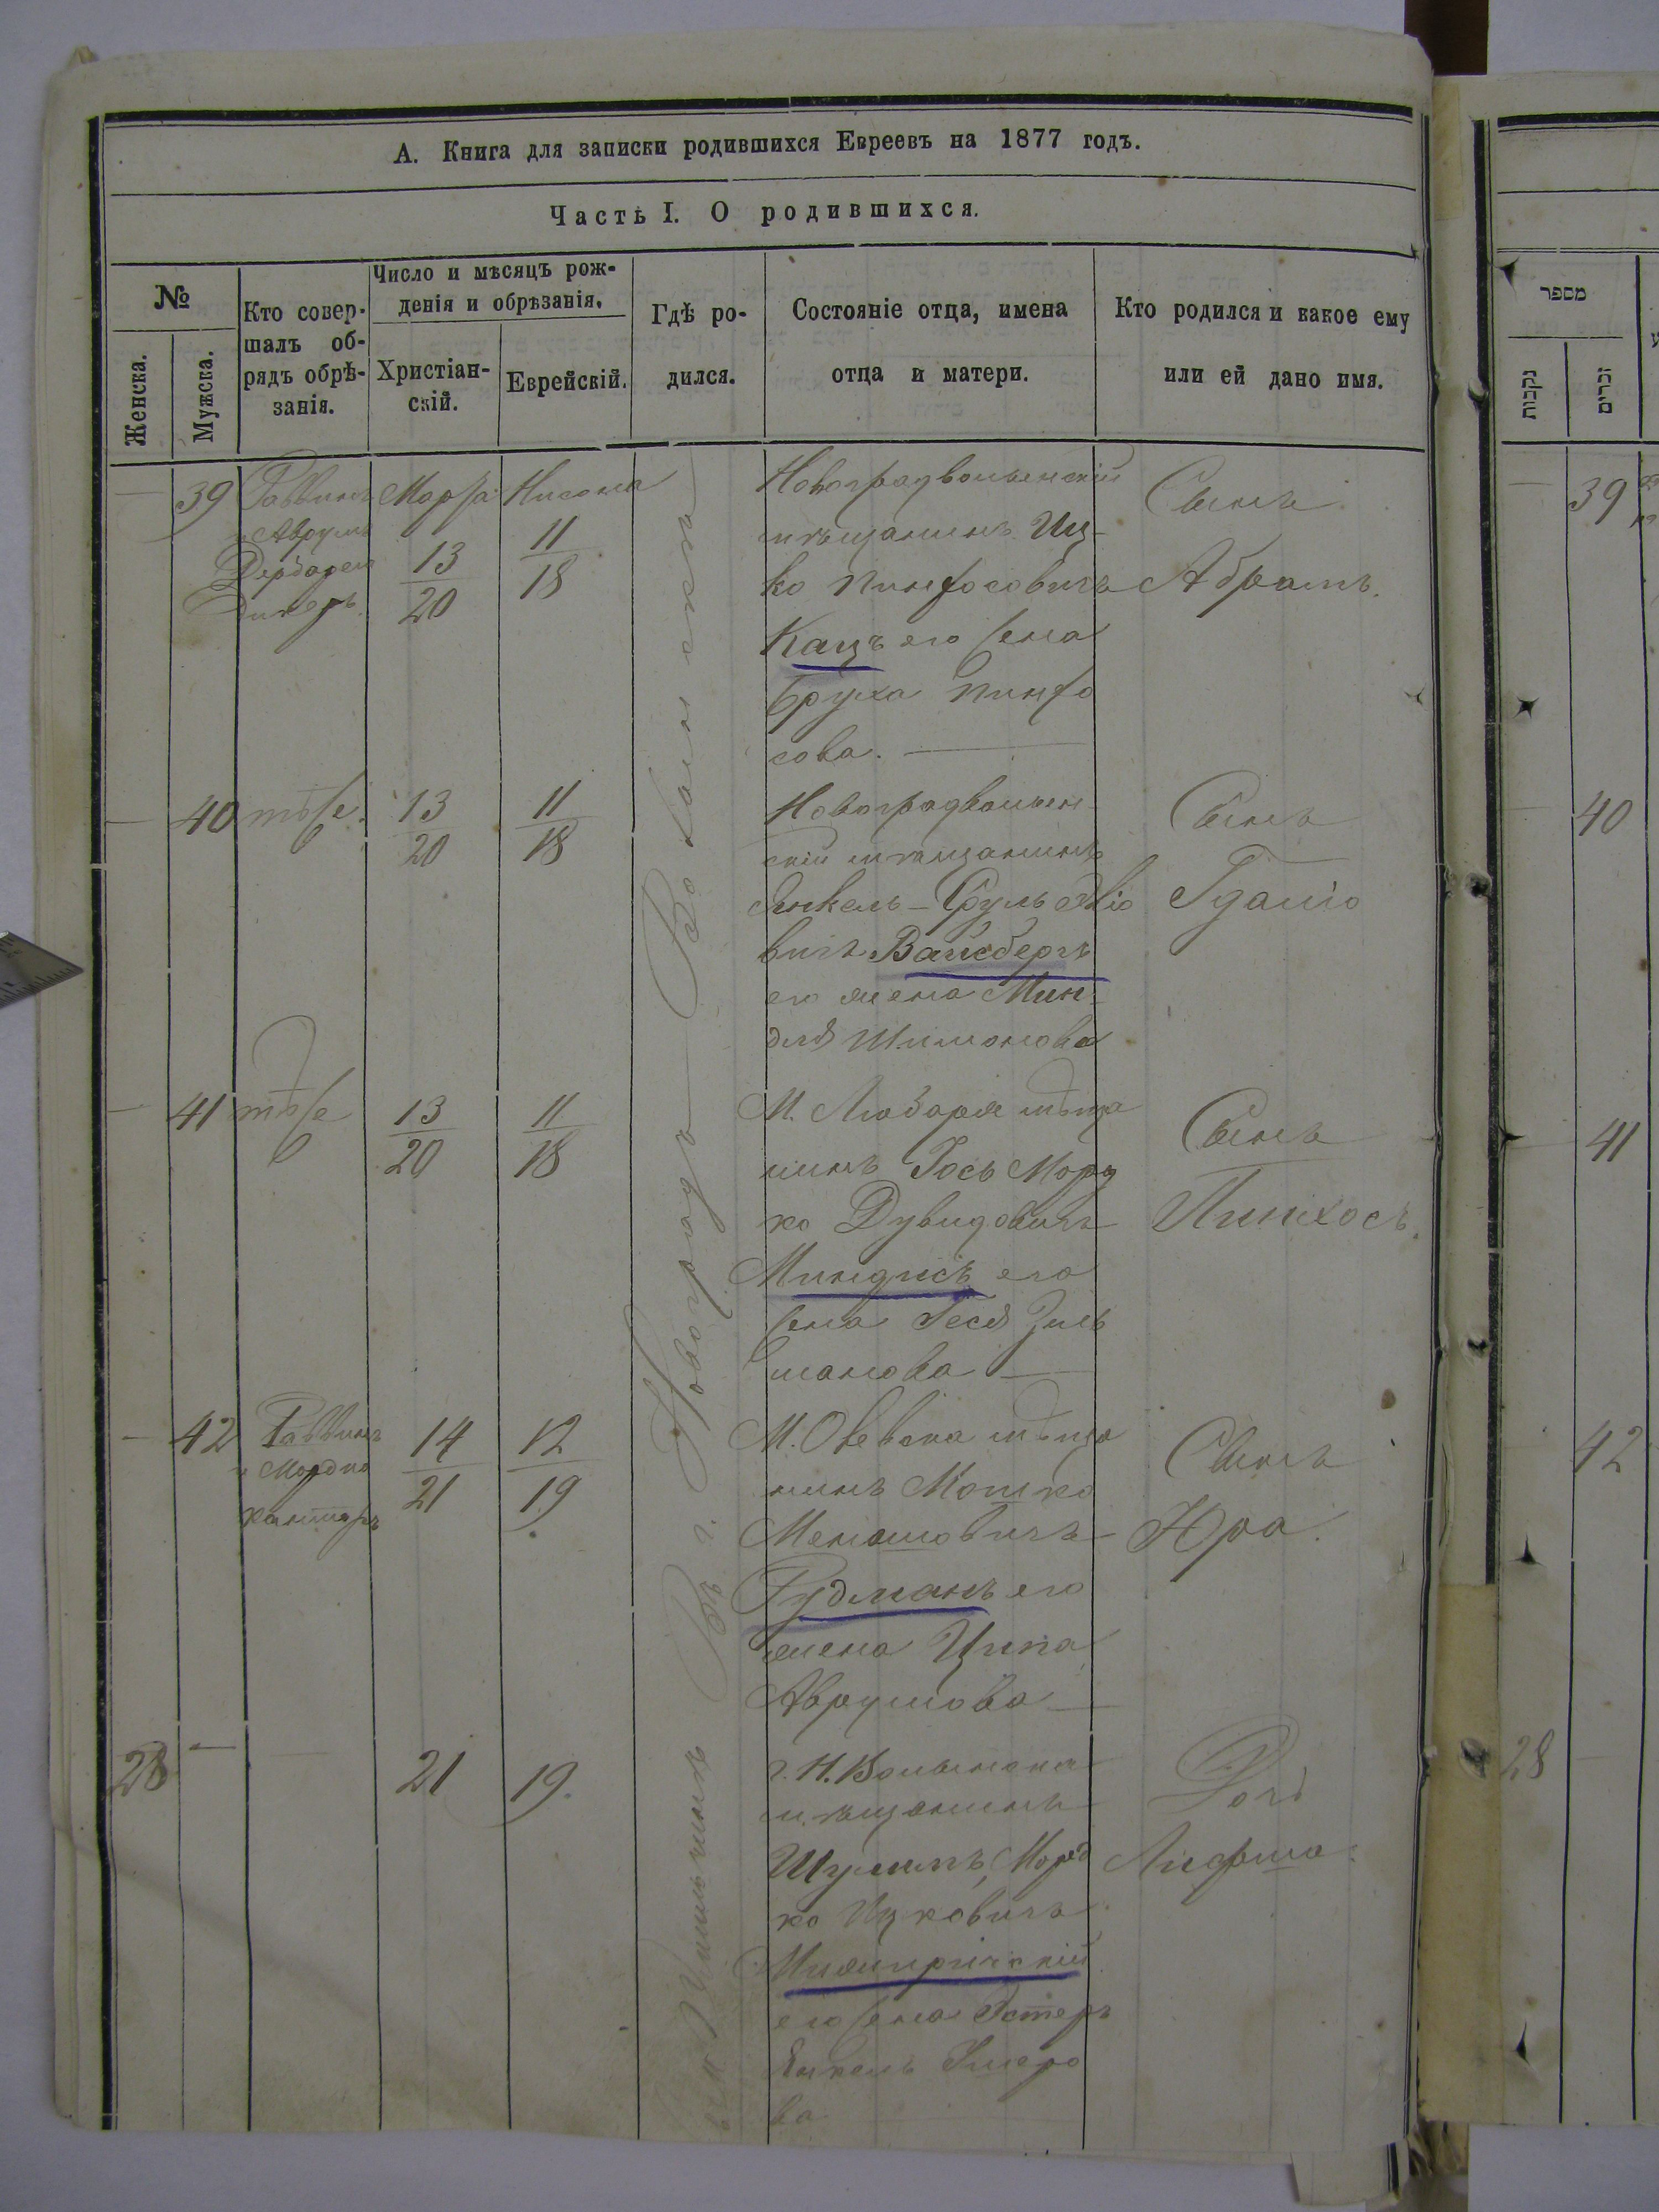 А. Книга для записки родившихся Евреевъ на 1877 годъ.
Часть I. О родившихся.
№
Женска.
Мужска.
Кто совер-
шалъ об-
рядъ обрѣ-
занія.
Число и мѣсяцъ рож-
денія и обрѣзанія.
Христіан-
скій.
Еврейскій.
Гдѣ ро-
дился.
Состояніе отца, имена
отца и матери.
Кто родился и какое ему
или ей дано имя.
Въ г. Новоградъ Волынскѣ
39
Раввинъ
Аврумъ
Марта
13
20
Нисона
11
18
Новоградволынскій
мѣщанинъ Иц-
ко Пинхосовичъ
Кацъ его жена
Бруха Пинхо
сова.
Сынъ
Абрамъ.
40
тоже
13
20
11
18
Новоградволын
скій мѣщанинъ
Янкель-Сруль
вичъ Вайсбергъ
его жена Мин-
для Шимонова
Сынъ
41
тоже
13
20
11
18
М. Любаря мѣща
нинъ Іось Морд
ко Дувидовичъ
его
жена Гися Зись
манова
Сынъ
Пинхосъ.
42
Раввинъ
и Мордко
Кантаръ
14
21
12
19
М. мѣща
нинъ Мошко
Меномовичъ
Гудманъ его
жена Ципа
Аврумова
Сынъ
Юра.
28
21
19.
г. Н. Волынска
мѣщанинъ
Шулимъ, Морд
ко Ицковичъ
его жена Эстеръ
Янкель
ва
Дочь
מספר
נקבות
זכרים
39
40
41
42
28